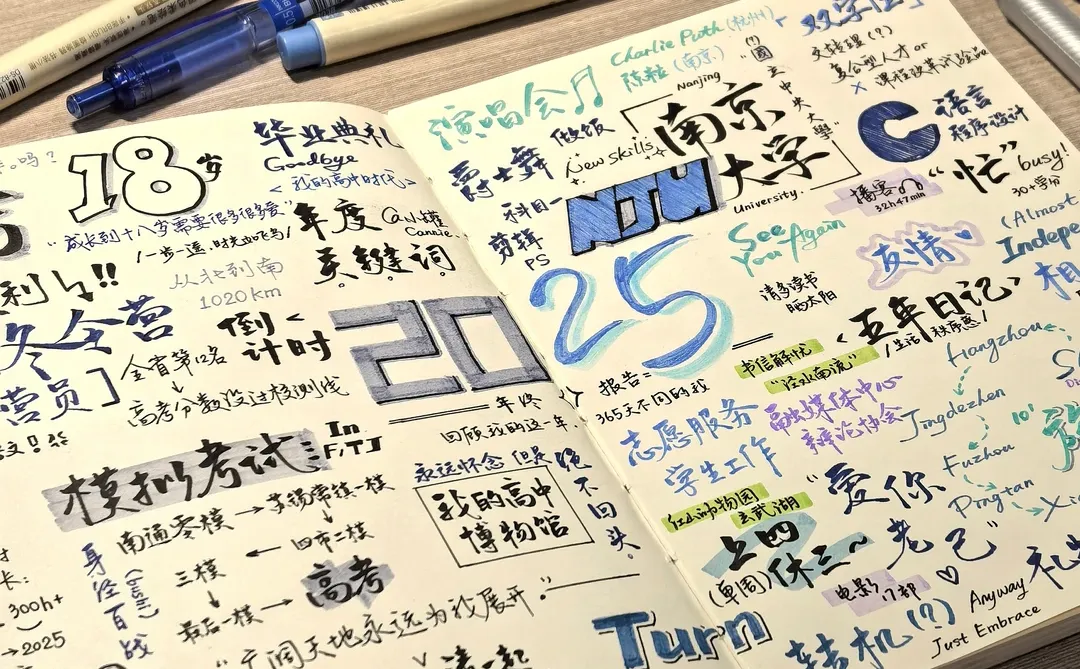 18岁
"成长到十八岁需要很多很多爱"
/一步一遥,时光如飞鸟/
从北到南
1020km
毕业典礼
Goodbye
<我的高中时代>
年度
关键词
利!!
冬令营
营员]
全省第12名
高考分数没过校测线
倒
计时
20
25
年终
回顾我的这一年.
报告=
365天不同的我
模拟考试
In
F,TJ
南通零模
苏锡常镇一模
四市二模
三模
最后一模
高考
身
经
百
战
(bushi)
300h+
→2025
永远怀念 但是绝不回头.
我的高中
博物馆
"广阔天地永远为我展开."
演唱会
Charlie Puth (杭州)
陈粒 (南京)
爵士舞
做饭
New skills
科目一
剪辑
PS
Nanjing
南京
大学
University.
NJU
(?)
國立中央大學"
双学位
交接理(?)
复合型人才 or
× 课程改革试验品
C
语言
程序设计
播客
32h47min
"忙" busy!
30+学分
See
You Again
请多读书
晒太阳
友情
(Almost
Indepe
<五年日记>
/生活秩序感/
书信解忧
"泾水南流"
志愿服务
学生工作
融媒体中心
辩论协会
Hangzhou
Jingdezhen
Fuzhou
Pingtan
红山动物园
玄武湖
上四
休三~
(单周)
电影
17部
"爱你
老己"
Anyway
Just Embrace
Turn
转机(?)